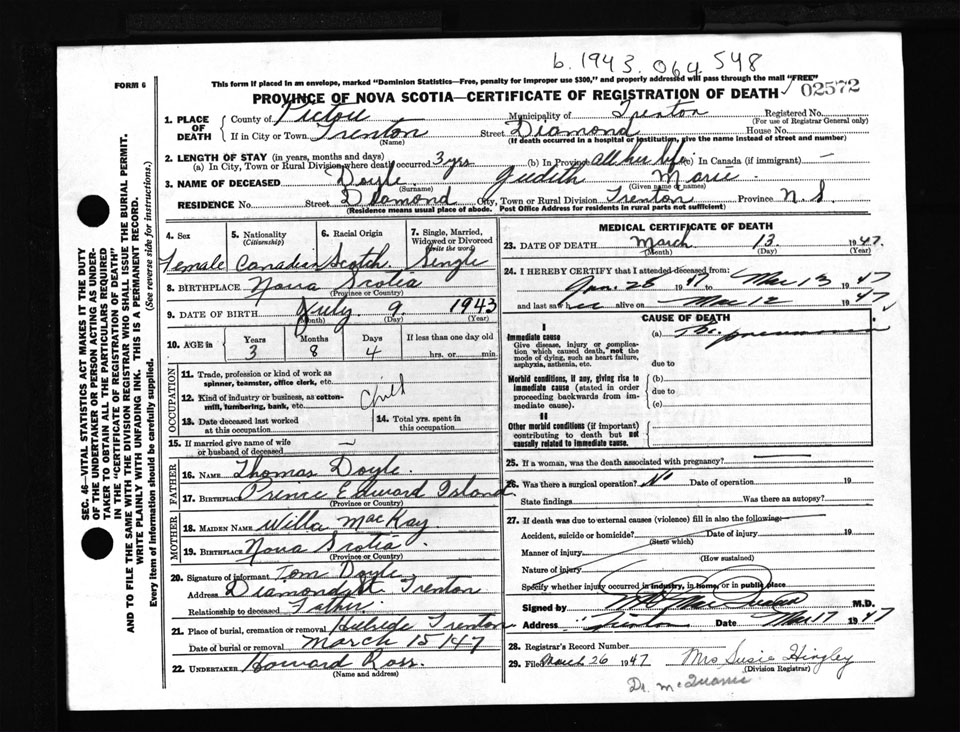 b. 1943. 064 548
FORM 6
This form if placed in an envelope, marked "Dominion Statistics—Free, penalty for improper use $300," and properly addressed will pass through the mail "FREE"
PROVINCE OF NOVA SCOTIA—CERTIFICATE OF REGISTRATION OF DEATH 02572
1. PLACE OF DEATH
County of Pictou Municipality of Trenton Registered No.
(For use of Registrar General only)
If in City or Town Trenton Street Diamond House No.
(Name) (If death occurred in a hospital or institution, give the name instead of street and number)
2. LENGTH OF STAY (in years, months and days)
(a) In City, Town or Rural Division where death occurred 3 yrs (b) In Province all her life (c) In Canada (if immigrant) —
3. NAME OF DECEASED Doyle Judith Marie
(Surname) (Given name or names)
RESIDENCE No. Street Diamond City, Town or Rural Division Trenton Province N.S.
(Residence means usual place of abode. Post Office Address for residents in rural parts not sufficient)
4. Sex
Female
5. Nationality
(Citizenship)
Canadian
6. Racial Origin
Scotch
7. Single, Married, Widowed or Divorced
(Write the word)
Single
8. BIRTHPLACE Nova Scotia
(Province or Country)
9. DATE OF BIRTH July 9 1943
(Month) (Day) (Year)
10. AGE in Years Months Days If less than one day old
3 8 4 hrs. or min.
OCCUPATION
11. Trade, profession or kind of work as spinner, teamster, office clerk, etc.
12. Kind of industry or business, as cotton-mill, lumbering, bank, etc.
Child
13. Date deceased last worked at this occupation
14. Total yrs. spent in this occupation
15. If married give name of wife or husband of deceased —
FATHER
16. NAME Thomas Doyle
17. BIRTHPLACE Prince Edward Island
(Province or Country)
MOTHER
18. MAIDEN NAME Willa MacKay
19. BIRTHPLACE Nova Scotia
(Province or Country)
20. Signature of informant Tom Doyle
Address Diamond St Trenton
Relationship to deceased Father
21. Place of burial, cremation or removal Hillside Trenton
Date of burial or removal March 15/47
22. UNDERTAKER Howard Ross.
(Name and address)
MEDICAL CERTIFICATE OF DEATH
23. DATE OF DEATH March 13 1947
(Month) (Day) (Year)
24. I HEREBY CERTIFY that I attended deceased from:
Jan. 28 1947 to Mar 13 1947
and last saw her alive on Mar 12 1947
CAUSE OF DEATH
I
Immediate cause
Give disease, injury or complication which caused death, not the mode of dying, such as heart failure, asphyxia, asthenia, etc.
(a) pneumonia
due to
Morbid conditions, if any, giving rise to immediate cause (stated in order proceeding backwards from immediate cause).
(b)
due to
(c)
II
Other morbid conditions (if important) contributing to death but not causally related to immediate cause.
25. If a woman, was the death associated with pregnancy?
26. Was there a surgical operation? No Date of operation 19
State findings Was there an autopsy?
27. If death was due to external causes (violence) fill in also the following:
Accident, suicide or homicide? Date of injury 19
(State which)
Manner of injury
(How sustained)
Nature of injury
Specify whether injury occurred in industry, in home, or in public place
Signed by M.D.
Address Trenton Date Mar 17 1947
28. Registrar's Record Number
29. Filed March 26 1947 Mrs Susie Hingley
(Division Registrar)
Dr. McQuarrie
SEC. 46—VITAL STATISTICS ACT MAKES IT THE DUTY
OF THE UNDERTAKER OR PERSON ACTING AS UNDER-
TAKER TO OBTAIN ALL THE PARTICULARS REQUIRED
IN THE "CERTIFICATE OF REGISTRATION OF DEATH"
AND TO FILE THE SAME WITH THE DIVISION REGISTRAR WHO SHALL ISSUE THE BURIAL PERMIT.
WRITE PLAINLY WITH UNFADING INK. THIS IS A PERMANENT RECORD.
Every item of information should be carefully supplied. (See reverse side for instructions.)